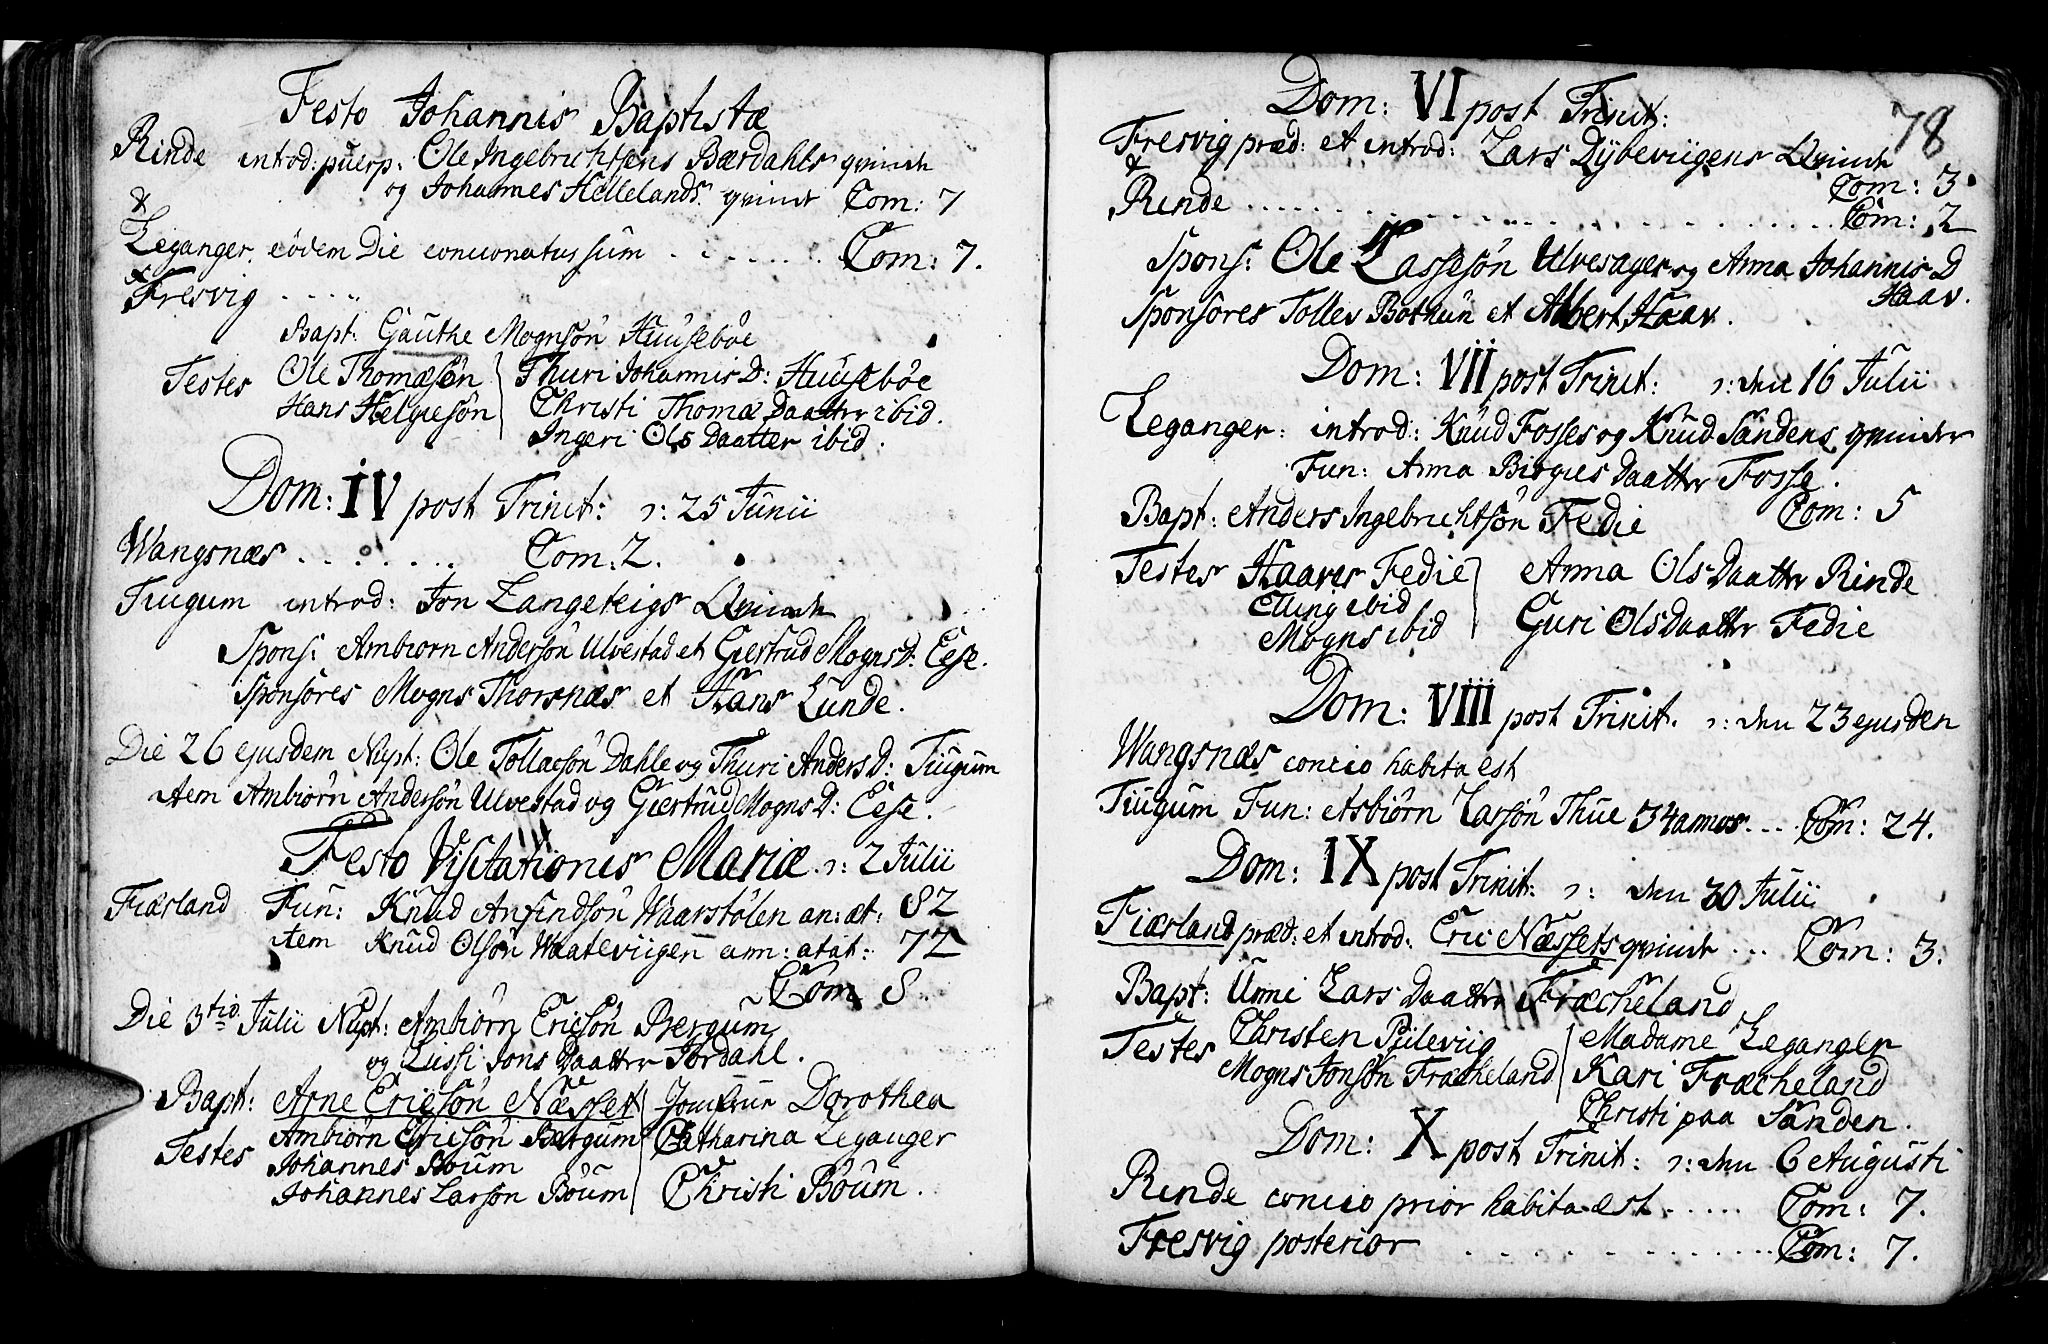 Festo Johannis Baptistæ
Rinde introd: puerp: Ole Ingebrichtsens Bærdahls qvinde
og Johannes Hellelands qvinde Com: 7
&
Leganger, eodem Die concionatus sum . . . . . . . Com: 7.
&
Fresvig . . . . .
Bapt. Gauthe Mognsön Huuseböe
Testes Ole Thomæsön Thuri Johannis D: Huuseböe
Hans Helgiesön Christi Thomæ Daatter ibid.
Ingeri Ols Daatter ibid.
Dom: IV post Trinit: ɔ: 25 Junii
Wangsnæs . . . . . . . Com: 2.
Tiugum introd: Jon Langeteigs Qvinde
Spons: Ambiorn Andersön Ulvestad et Giertrud Mogns D: Eese.
Sponsores Mogns Thorsnæs et Hans Lunde.
Die 26 ejusdem Nupt: Ole Tollacsön Dahle og Thuri Anders D: Tiugum
item Ambiörn Andersön Ulvestad og Giertrud Mogns D: Eese.
Festo Visitationis Mariæ ɔ: 2 Julii
Fiærland Fun: Knud Anfindsön Waarstölen an: æt: 82
item Knud Olsön Waateviigen ann: ætat: 72
Com 8
Die 3tio Julii Nupt: Ambiörn Ericsön Bergum
og Lussi Jons Daatter Jordahl.
Bapt: Arne Ericsön Næsset Jomfrue Dorothea
Testes Ambiörn Ericsön Bergum Catharina Leganger
Johannes Böum
Johannes Larsön Böum Christi Böum.
78
Dom: VI post Trinit:
Fresvig præd: et introd: Lars Dybeviigens Qvinde
Com: 3
&
Rinde . . . . . . . . . . . . . . . . Com: 2
Spons: Ole Lassesön Ulvesager og Anna Johannis D
Haav.
Sponsores Tolles Bothun et Albert Haav.
Dom: VII post Trinit: ɔ: den 16 Julii
Leganger: introd: Knud Fosses og Knud Sandens qvinder
Fun: Anna Birgies Daatter Fosse.
Bapt: Anders Ingebrichtsön Fedie Com: 5
Testes Haaver Fedie Anna Ols Daatter Rinde
Elling ibid
Mogns ibid Guri Ols Daatter Fedie
Dom: VIII post Trinit. ɔ: den 23 ejusden
Wangsnæs concio habita est
Tiugum Fun: Asbiörn Larsön Thue 34 annos . . . . Com: 24.
Dom: IX post Trinit: ɔ: den 30 Julii
Fiærland præd: et introd: Eric Næssets qvinde . . . Com: 3.
Bapt: Unni Lars Daatter Fræcheland
Testes Christen Piileviig Madame Leganger
Mogns Jonsön Fræcheland Kari Fræcheland
Christi paa Sanden.
Dom: X post Trinit: ɔ: den 6 Augusti
Rinde concio prior habita est . . . . . Com: 7.
Fresvig posterior . . . . . . . . . . . . Com: 7.